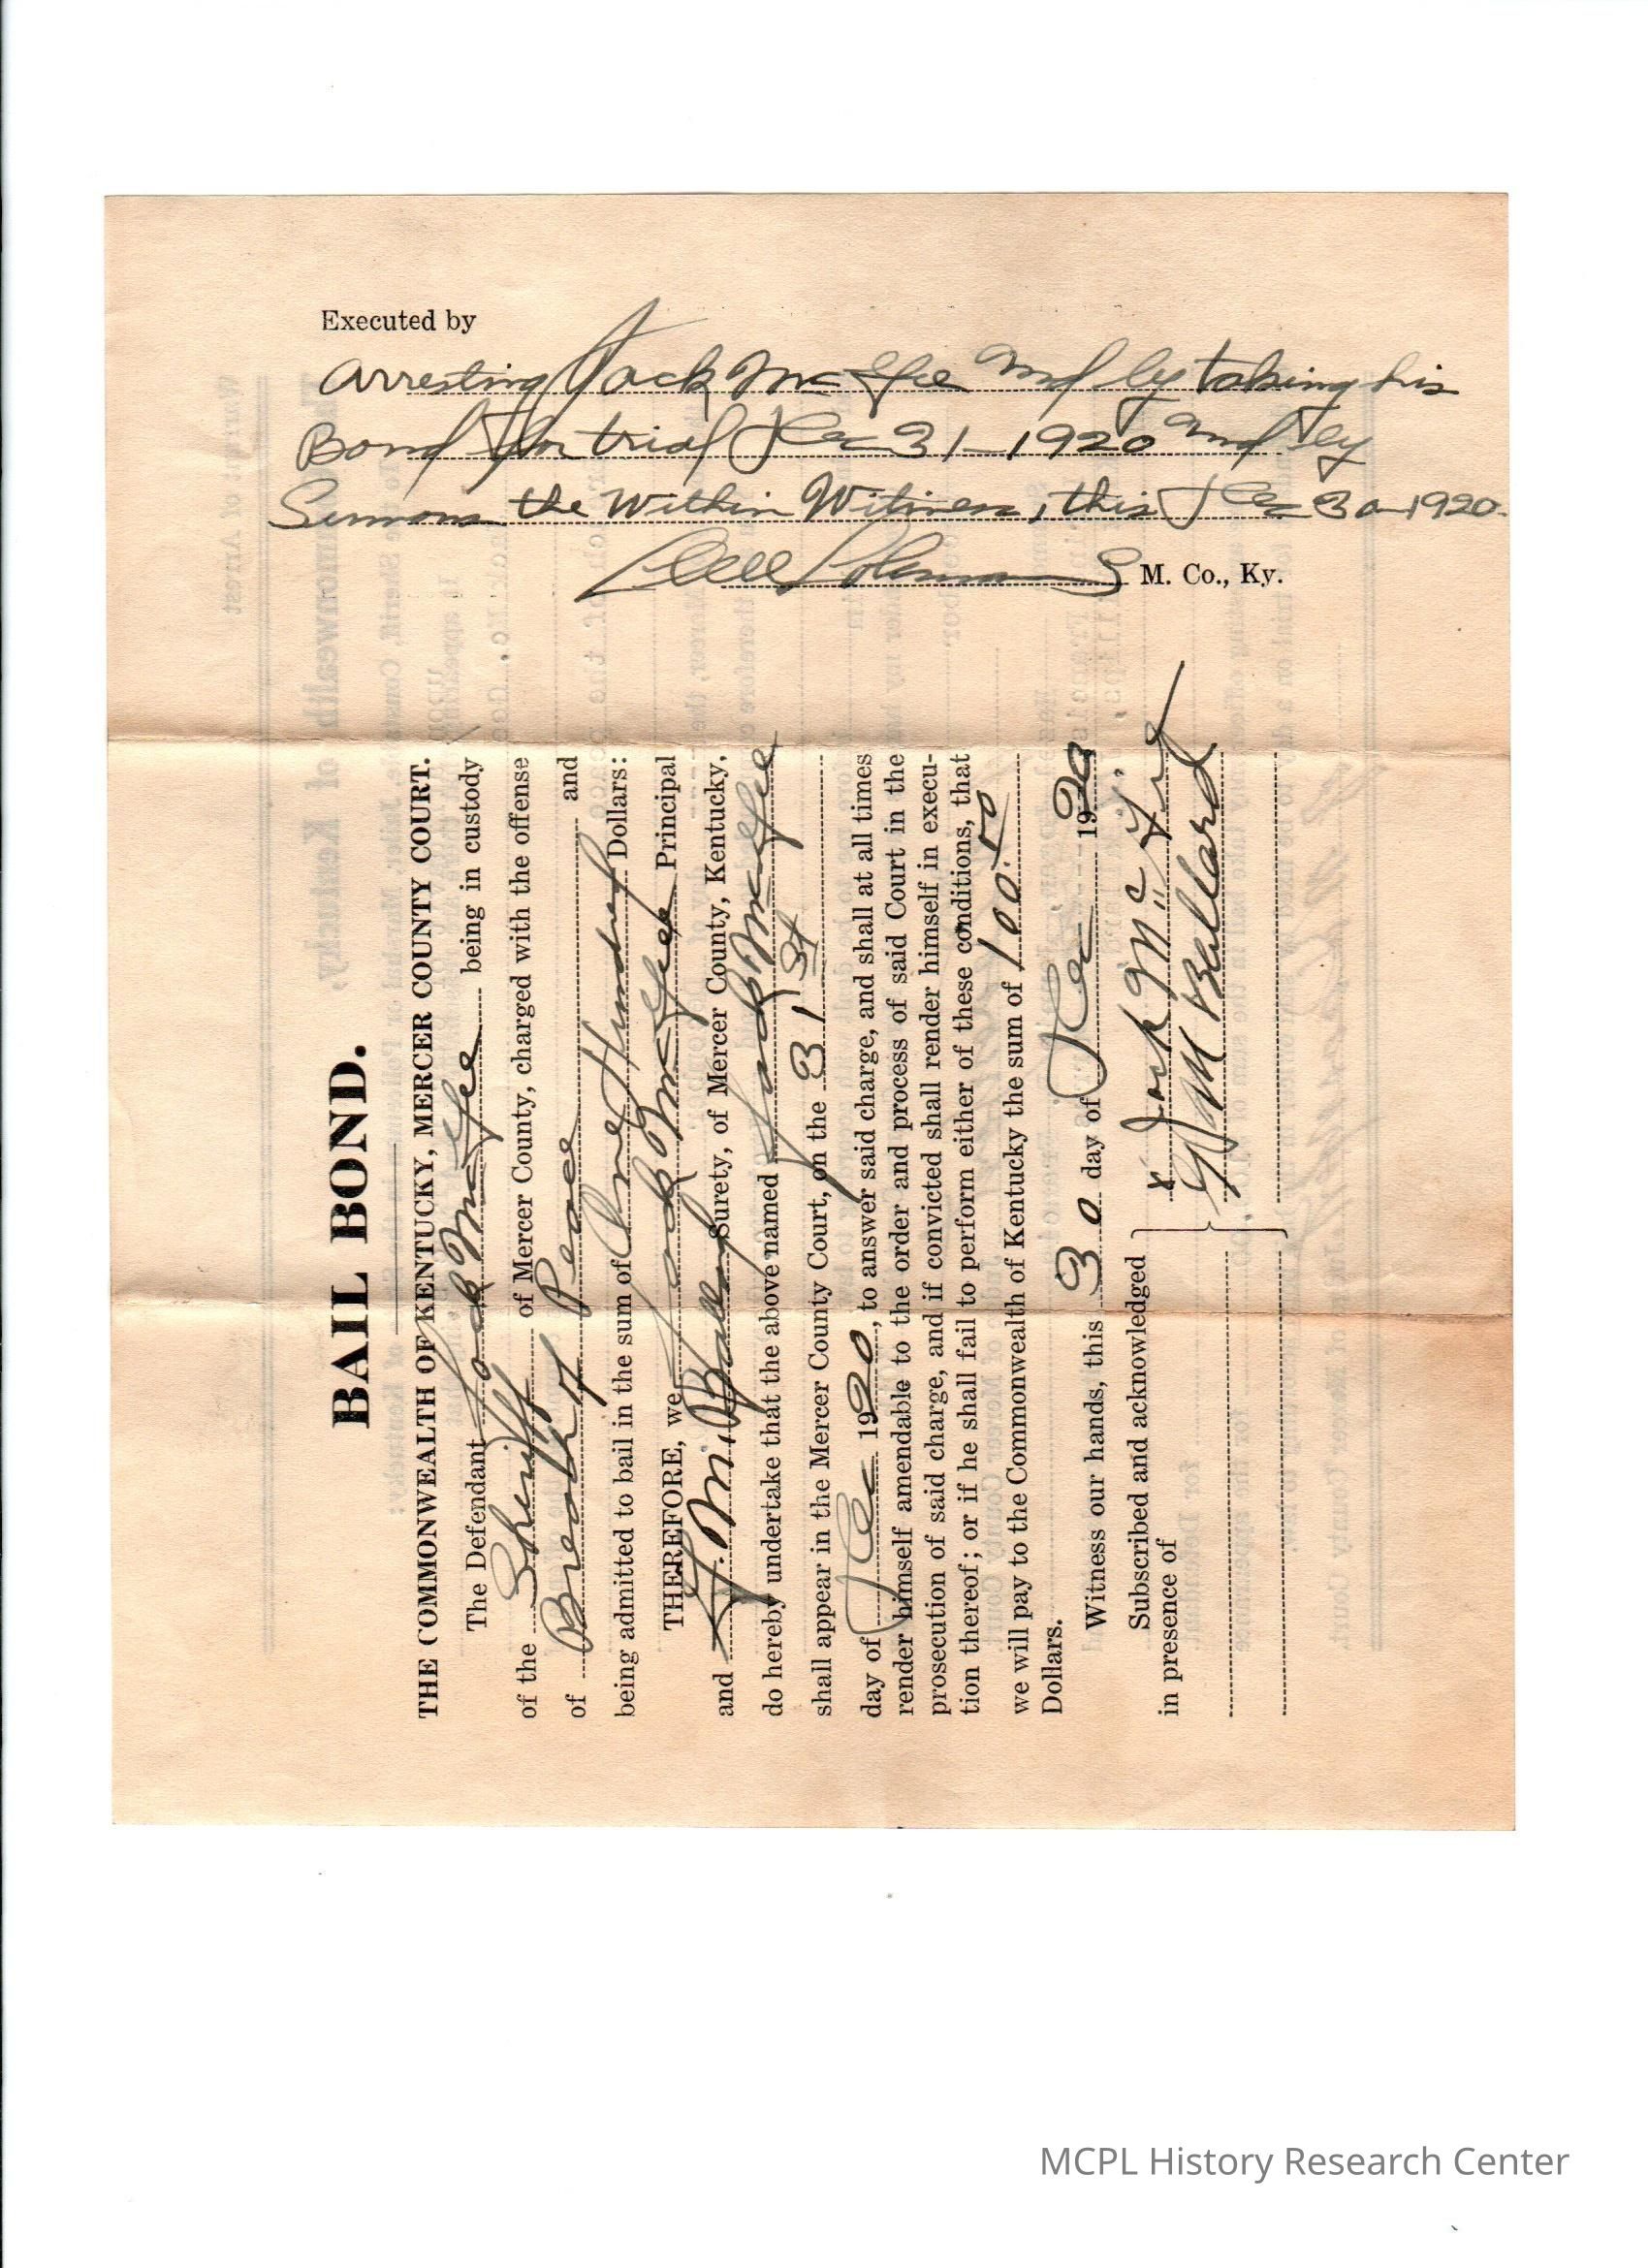 Executed by
Arresting Jack McGee and by taking his
Bond for trial Dec 31-1920 and by
Summons the Within Witness, this Dec 30-1920.
Coleman S M. Co., Ky.
BAIL BOND.
THE COMMONWEALTH OF KENTUCKY, MERCER COUNTY COURT.
The Defendant Jack McGee being in custody
of the Sheriff of Mercer County, charged with the offense
of Breach of Peace and
being admitted to bail in the sum of One Hundred Dollars:
THEREFORE, we Jack McGee Principal
and J. M. Ballard Surety, of Mercer County, Kentucky,
do hereby undertake that the above named Jack McGee
shall appear in the Mercer County Court, on the 31st
day of Dec 1920, to answer said charge, and shall at all times
render himself amendable to the order and process of said Court in the
prosecution of said charge, and if convicted shall render himself in execu-
tion thereof; or if he shall fail to perform either of these conditions, that
we will pay to the Commonwealth of Kentucky the sum of 100.00
Dollars.
Witness our hands, this 30 day of Dec 1920
Subscribed and acknowledged
in presence of
x Jack
J M Ballard
MCPL History Research Center